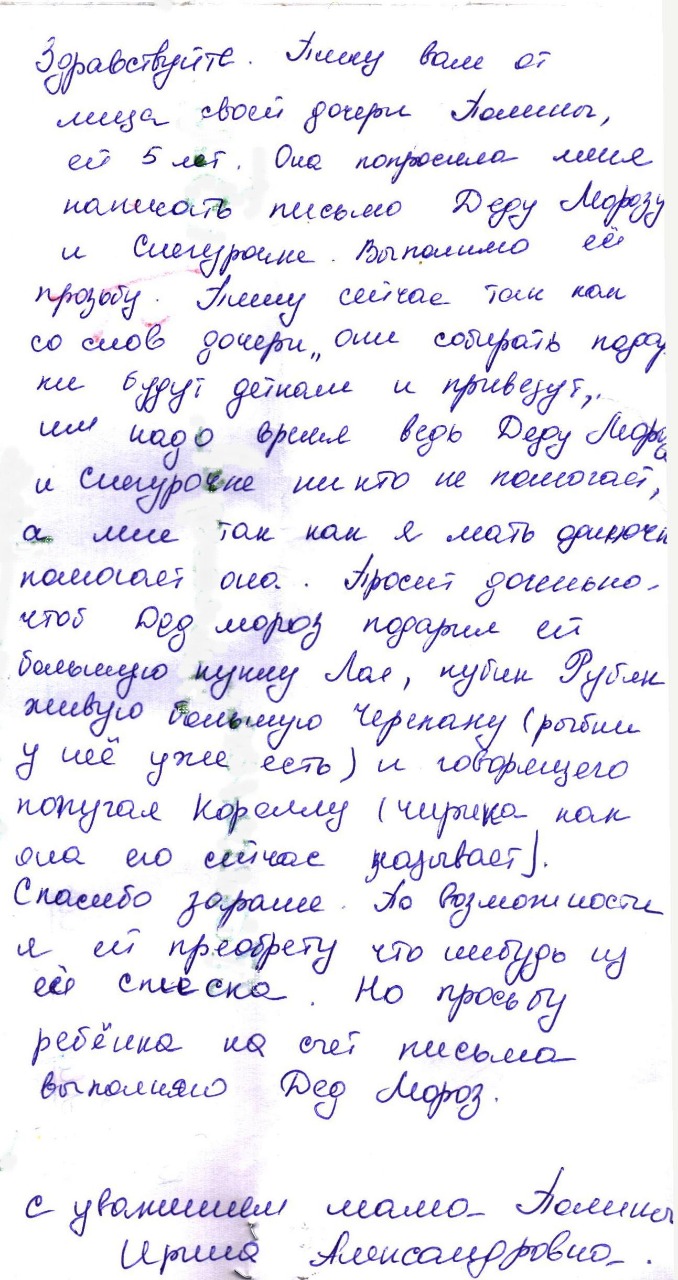 Здравствуйте. Пишу вам от
лица своей дочери Полины,
ей 5 лет. Она попросила меня
написать письмо Деду Морозу
и Снегурочке. Выполняю её
прозьбу. Пишу сейчас так как
со слов дочери „они собирать подар
ки будут деткам и привезут,
им надо время ведь Деду Мороз
и Снегурочке ни кто не помогает,
а мне так как я мать одиночк
помогает она. Просит доченька
чтоб Дед мороз подарил ей
большую куклу Лол, кубик Рубик
живую большую Черепаху (рыбки
у неё уже есть) и говорящего
попугая Кореллу (чирика как
она его сейчас называет).
Спасибо зарание. По возможности
я ей преобрету что нибудь из
её списка. Но просьбу
ребёнка на счет письма
выполняю Дед Мороз.
С уважением мама Полины
Ирина Александровна.